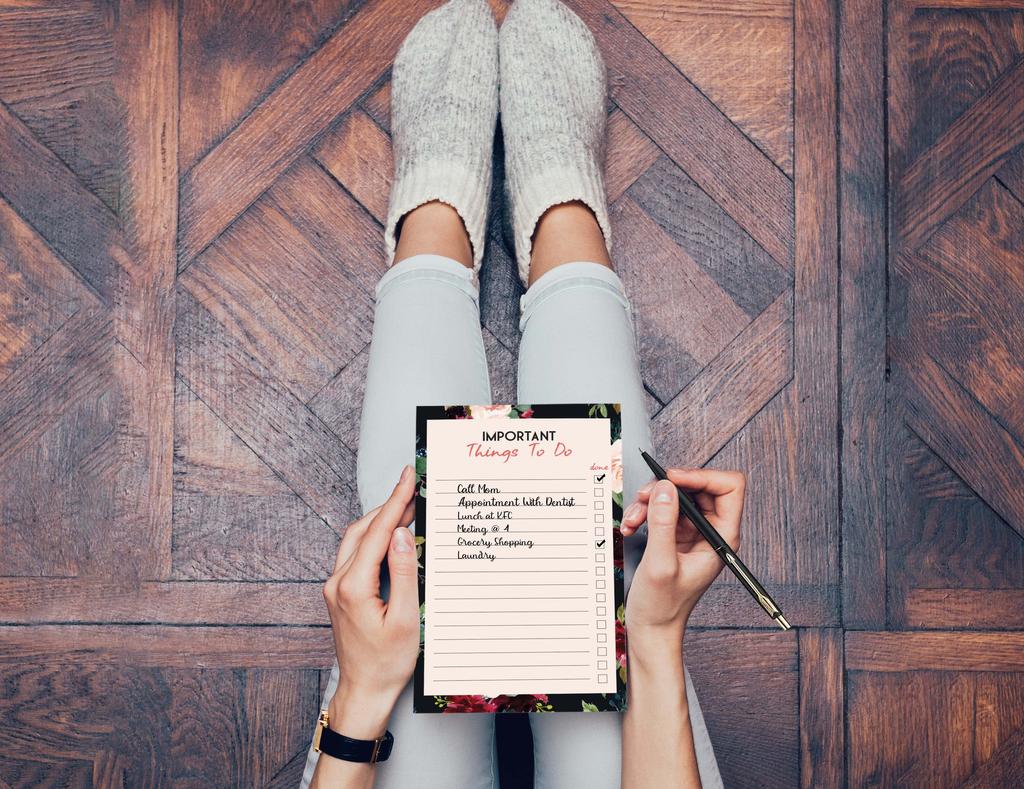 IMPORTANT
Things To Do
done
Call Mom
Appointment With Dentist
Lunch at KFC
Meeting @ 4
Grocery Shopping
Laundry